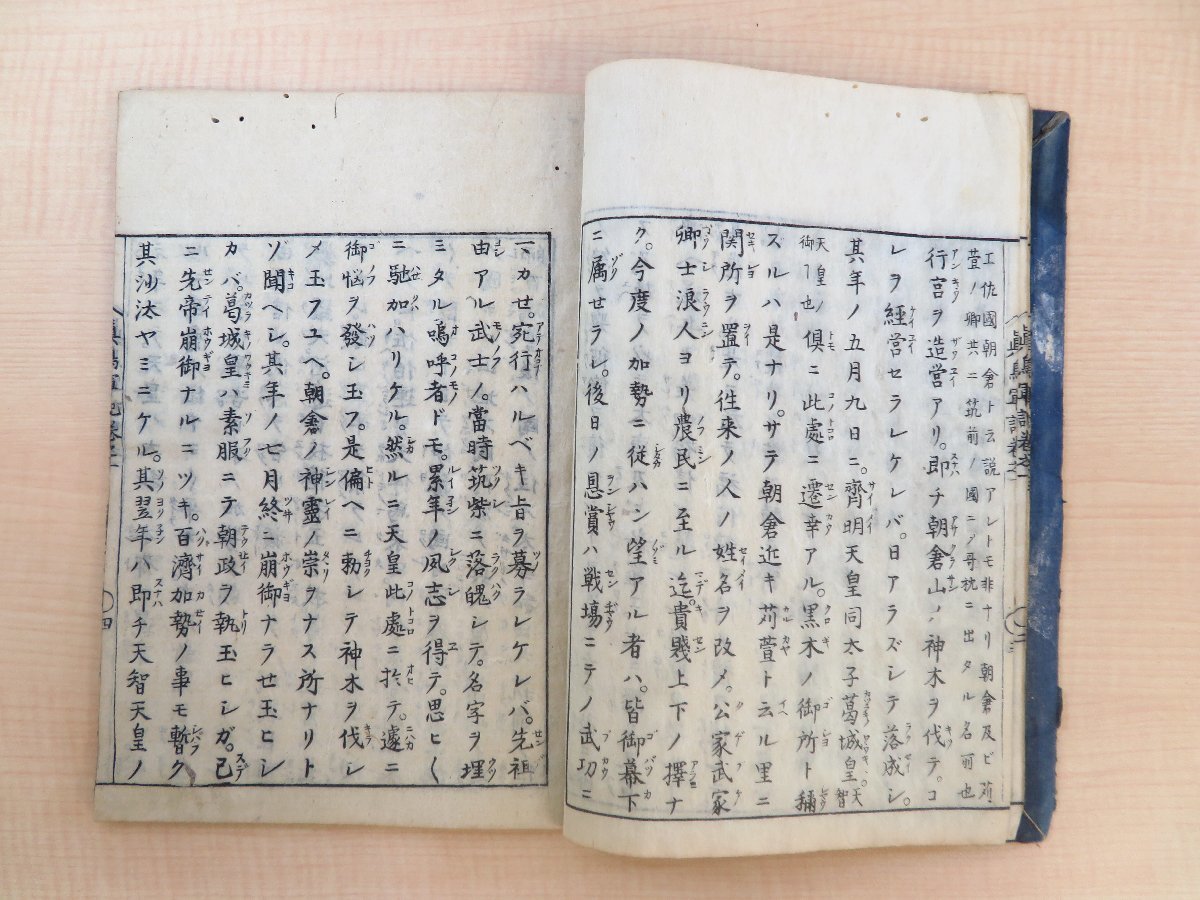 土佐國朝倉ト云説アレトモ非ナリ朝倉及ビ苅
萱ノ郷共ニ筑前ノ國ニメ哥枕ニ出タル名所也
行宮ヲ造営アリ。即チ朝倉山ノ神木ヲ伐テ。コ
レヲ經営セラレケレバ。日アラズシテ落成シ。
其年ノ五月九日ニ。齊明天皇同太子葛城皇天智
天皇ノ御ヿ也倶ニ此處ニ遷幸アル。黒木ノ御所ト稱
ズルハ是ナリ。サテ朝倉近キ苅萱ト云ル里ニ
関所ヲ置テ。往来ノ人ノ姓名ヲ改メ。公家武家
卿士浪人ヨリ農民ニ至ル迄。貴賤上下ノ擇ナ
ク。今度ノ加勢ニ従ハン望アル者ハ。皆御幕下
ニ属せラレ。後日ノ恩賞ハ戦場ニテノ武功ニ
ヨカせ。宛行ハルベキ旨ヲ募ラレケレバ。先祖
由アル武士ノ。當時筑紫ニ落魄シテ。名字ヲ埋
ミタル嗚呼者ドモ。累年ノ夙志ヲ得テ。思ヒ〱
ニ馳加ハリケル。然ルニ天皇此處ニ於テ。遽ニ
御悩ヲ發シ玉フ。是偏ヘニ勅シテ神木ヲ伐シ
メ玉フユヘ。朝倉ノ神靈ノ崇ヲナス所ナリト
ゾ聞ヘシ。其年ノ七月終ニ崩御ナラせ玉ヒシ
カバ。葛城皇ハ素服ニテ朝政ヲ執玉ヒシガ。已
ニ先帝崩御ナルニツキ。百濟加勢ノ事モ暫ク
其沙汰ヤミニケル。其翌年ハ即チ天智天皇ノ
四